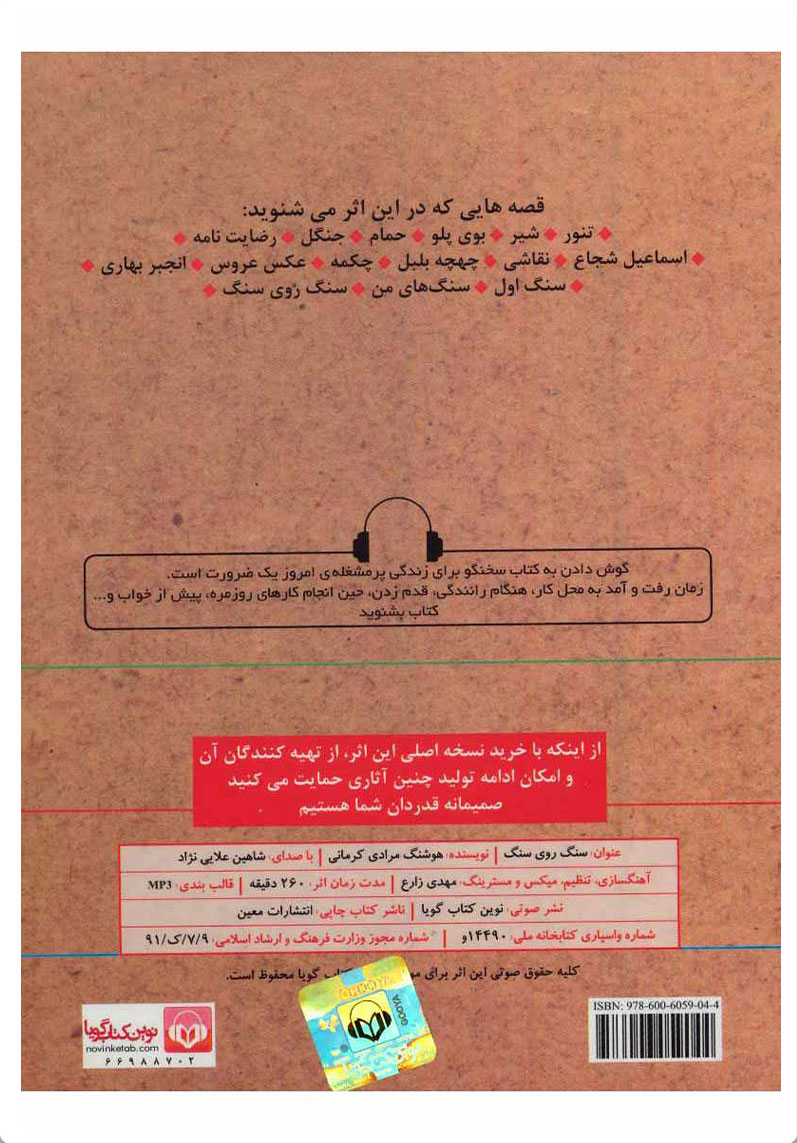 قصه هایی که در این اثر می شنوید:
◆ تنور ◆ شیر ◆ بوی پلو ◆ حمام ◆ جنگل ◆ رضایت نامه ◆
◆ اسماعیل شجاع ◆ نقاشی ◆ چهچه بلبل ◆ چکمه ◆ عکس عروس ◆ انجیر بهاری ◆
◆ سنگ اول ◆ سنگ‌های من ◆ سنگ روی سنگ ◆
گوش دادن به کتاب سخنگو برای زندگی پرمشغله‌ی امروز یک ضرورت است.
زمان رفت و آمد به محل کار، هنگام رانندگی، قدم زدن، حین انجام کارهای روزمره، پیش از خواب و...
کتاب بشنوید
از اینکه با خرید نسخه اصلی این اثر، از تهیه کنندگان آن
و امکان ادامه تولید چنین آثاری حمایت می کنید
صمیمانه قدردان شما هستیم .
عنوان: سنگ روی سنگ | نویسنده: هوشنگ مرادی کرمانی | با صدای: شاهین علایی نژاد
آهنگسازی، تنظیم، میکس و مسترینگ: مهدی زارع | مدت زمان اثر: ۲۶۰ دقیقه | قالب بندی: MP3
نشر صوتی: نوین کتاب گویا | ناشر کتاب چاپی: انتشارات معین
شماره واسپاری کتابخانه ملی: ۱۴۴۹۰و | شماره مجوز وزارت فرهنگ و ارشاد اسلامی: ۹۱/ک/۷/۹
کلیه حقوق صوتی این اثر برای کتاب گویا محفوظ است.
ISBN: 978-600-6059-04-4
GOOYA
نوین کتاب گویا
novinketab.com
۶۶۹۸۸۷۰۲